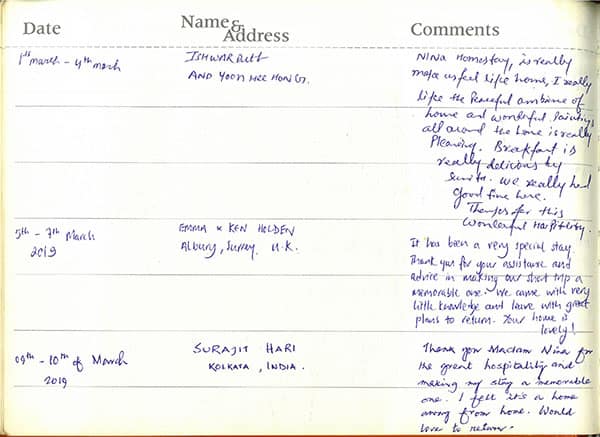 Date
Name & Address
Comments
1st march - 4th march
ISHWAR Dutt
AND YOON HEE HONG.
NINA Homestay, is really
make us feel like home, I really
like the Peaceful ambine of
home and wonderful Paintings
all around the home is really
Pleasing. Breakfast is
really delicious by
Sunita. We really had
Good time here.
Thanks for this
Wonderful Hospitality.
5th - 7th March
2019
EMMA & KEN HOLDEN
Albury, Surrey. U.K.
It has been a very special stay.
Thank you for your assistance and
advice in making our short trip a
memorable one. We came with very
little knowledge and leave with great
plans to return. Your home is
lovely!
09th - 10th of March
2019
SURAJIT HARI
KOLKATA, INDIA.
Thank you Madam Nina for
the great hospitality and
making my stay a memorable
one. I felt it's a home
away from home. Would
love to return.